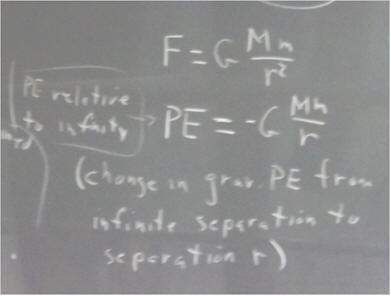 F = G Mm/r²
PE relative
to infinity
PE = -G Mm/r
(change in grav. PE from
infinite separation to
separation r)